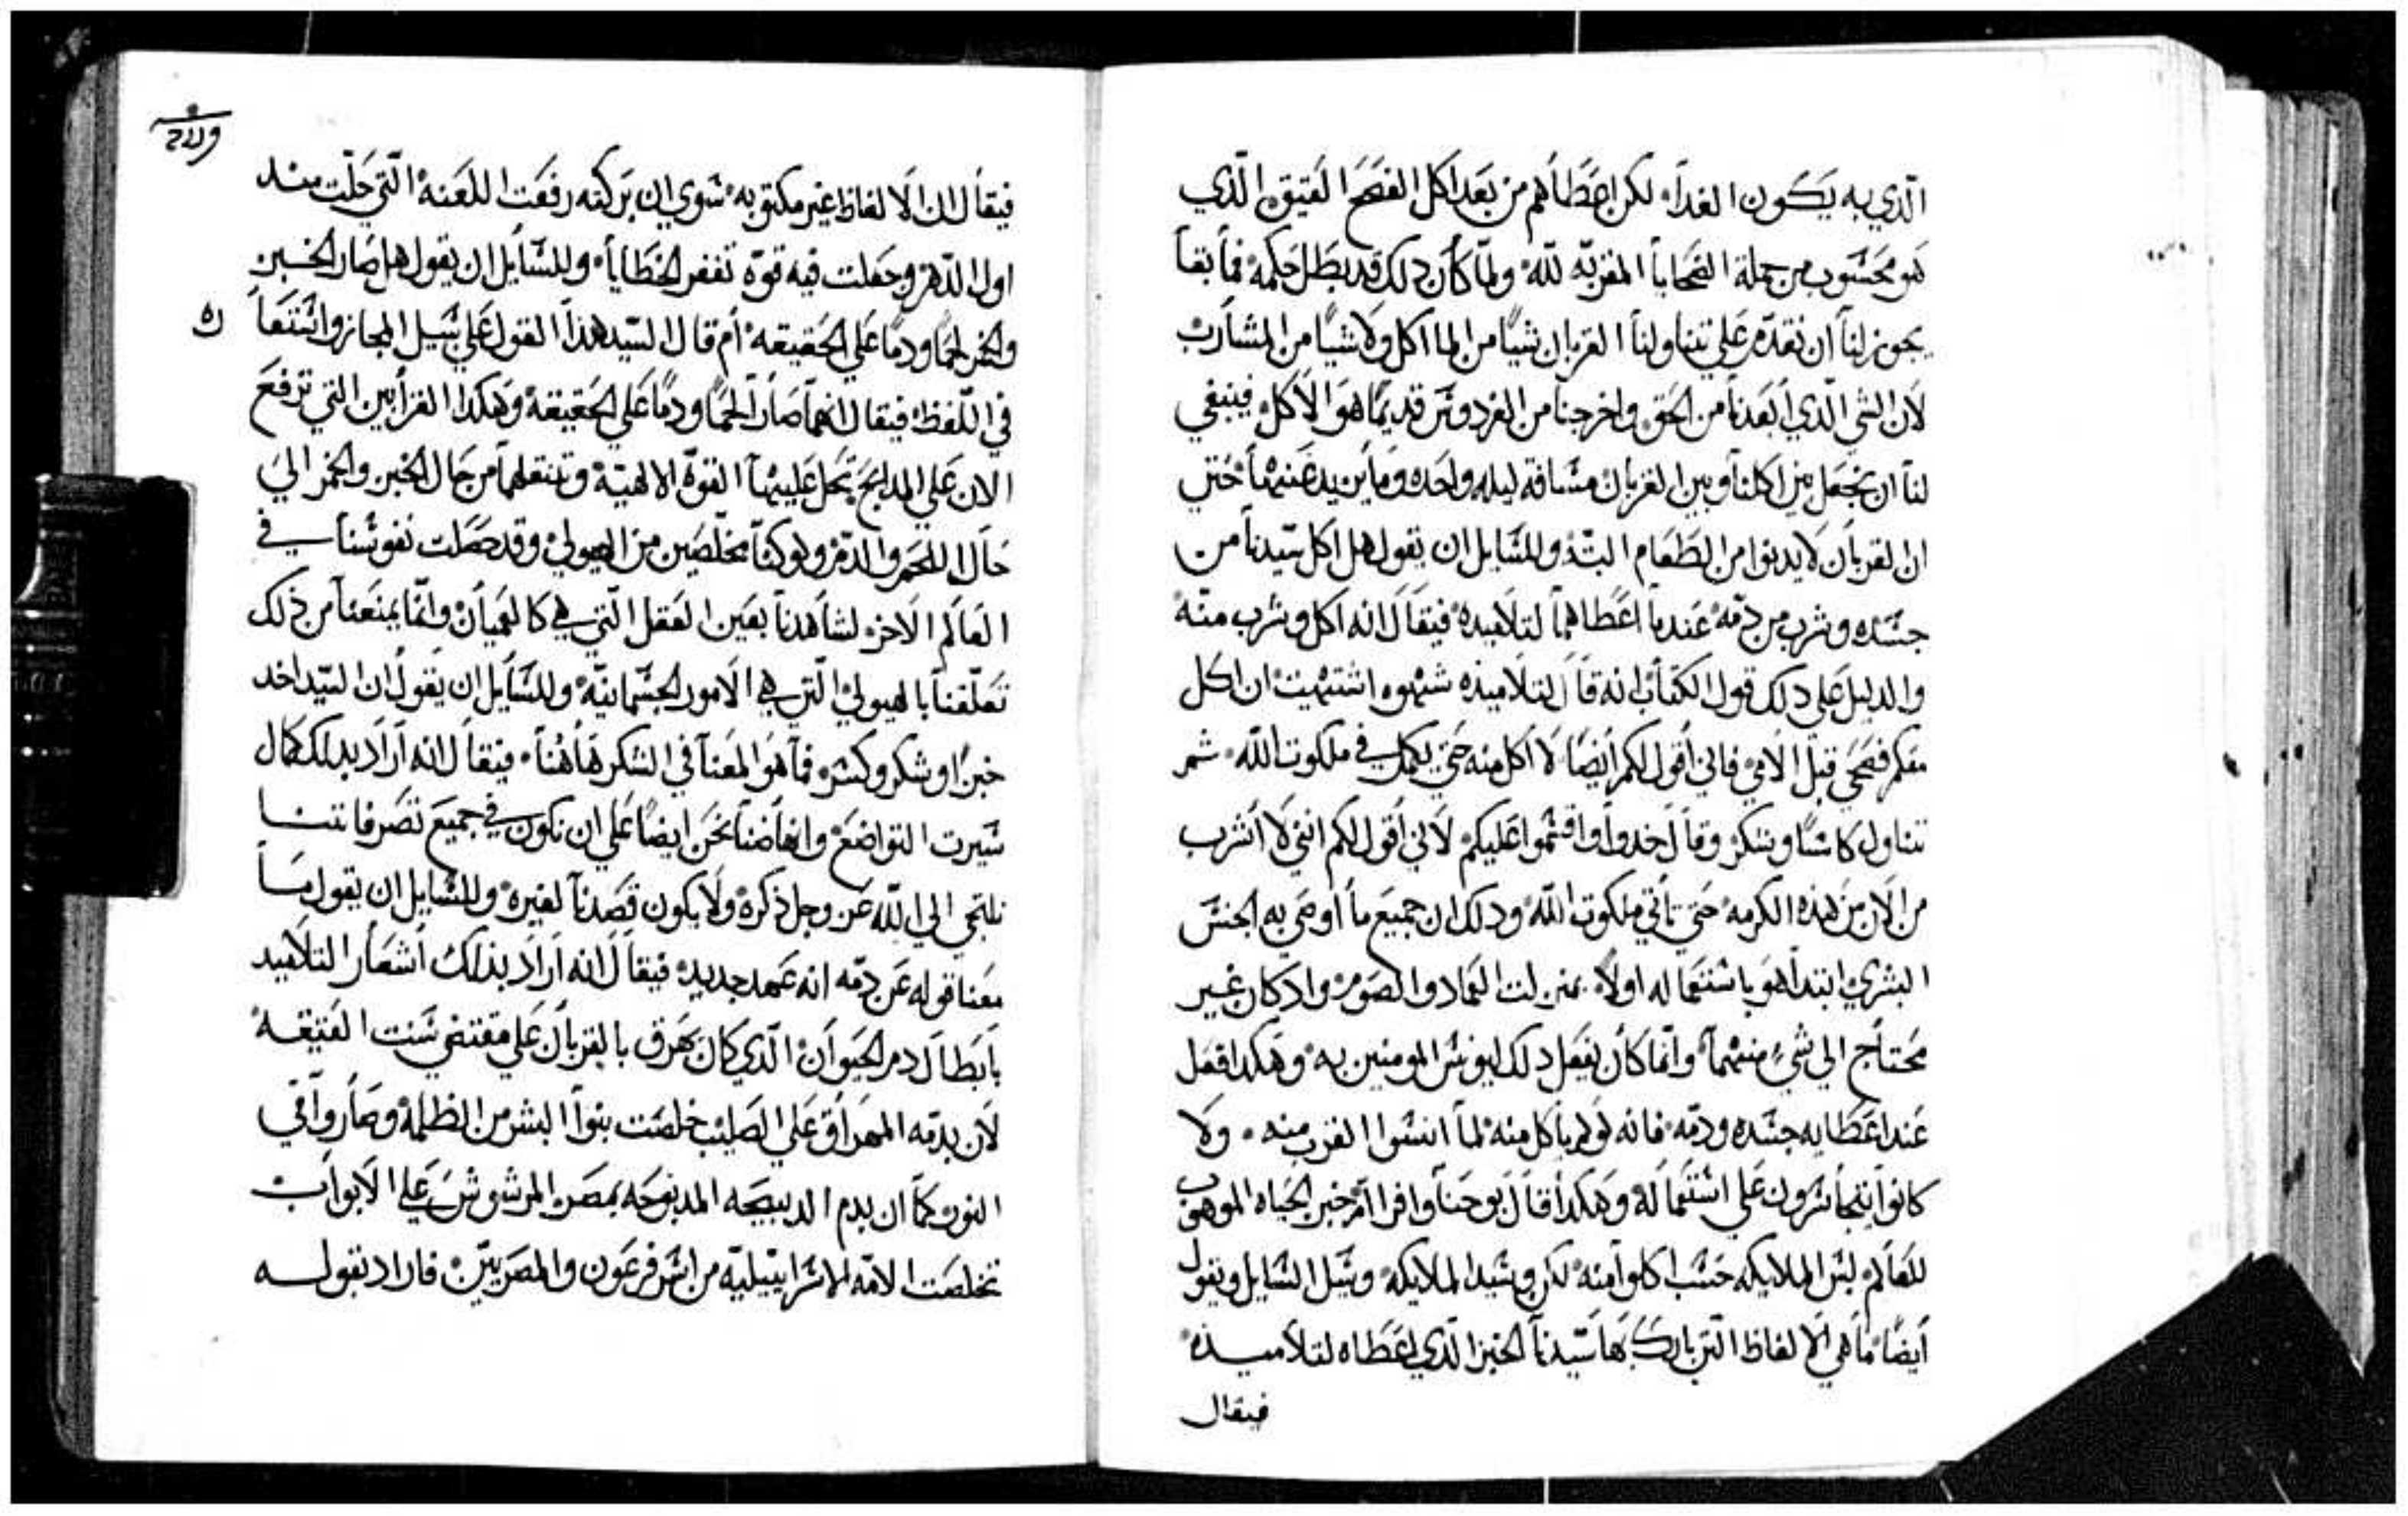 الّذي به يَكون الغدآء لكن اعطَاهم من بَعد اكل الفصَح العَتيق الّذي
هَو محَسَوب من جملة الضحَايا المقربّه للّه ولمّا كاَن دلك قد بطَل حَكمه فما بقاَ
يجوز لناَ ان نقدّم عَلي تناولناَ القربان شيًا من الماكل ولا شيًا من المشاَرب
لاَن الشي الّذي اَبعَدناَ من الحَق واخرجناَ من الفردوسَ قديمًا هوَ الاَكل فينبغي
لناَ ان نجعَل بين اكلناَ وبين القربان مسَافة ليله واحَده ومَا يزيد عَنهاَ حَتي
ان القرباَن لا يدنوا من الطَعَام البتّه وللسَايل ان يقول هل اكل سَيدناَ من
جسَده وشرب من دمّه عَندما اعَطاهماَ لتلاَميده فيقاَل انه اكل وشرب منه
والدليل عَلي دلك قول الكتاب انه قاَل لتلاميذه شهوه اشتهيت ان اكل
معَكم فصَحي قبل الاَمي فاني اقول لكم اَيضًا لا اَكل منه حَتي يكمل في ملكوت اللّه ثم
تناول كاسًا وشكر وقاَل خدوا واقسَموا عَليكم لاَني اَقول لكم انني لا اشرب
من الاَن من هَذه الكرمه حَتي تأتي ملكوت اللّه ودلك ان جميَع ما اوصَي به الجنسَ
البشري ابتدا هَو باستعَماله اولاً بمنزلت العَماد والصَوم واد كان غير
محَتاَج الي شيءٍ منهماَ وانّما كاَن يفعَل دلك ليونسَ المومنين به وهَكدا فعَل
عَند اعَطَايه جسَده ودمّه فانه لو لم ياكل منه لماَ انسَوا القرب منه ولا
كانوا يتجاسَرون عَلي استعَماله وهَكدا قاَل يوحَنا وافرام خبز الحَياه الموهَوب
للعَالم ليسَ الملايكه حَسَب اكلوا منه لكن وسَيد الملايكه وسَيل السَايل ويقول
اَيضًا ماَ هَي الاَلفاظ الّتي بارك بهَا سَيّدناَ الخبز الّدي اعَطَاه لتلاَميــذه
فيقال
فيقاَل ان الاَلفاظ غير مكتوبه سَوي ان بَركته رفعَت اللعَنه الّتي حَلّت مند
اول الدّهر وجعَلت فيه قوّة تغفر الخطَاياَ وللسَاَيل ان يقول هل صَار الخــبز
والخمر لحمًا ودمًا عَلي الحَقيقه اَم قال السَيّد هَذا القول عَلي سَبيل المجاز واتسَعاَ
في اللّفظ فيقال انهماَ صَاراَ لحمًا ودمًا عَلي الحَقيقة وهَكدا القراَبين التي ترفعَ
الان عَلي المدابح تحَل عَليهاَ القوة الالهيّة وتنقلهاَ من حَال الخبز والخمر الي
حَال اللحَم والدّم ولو كناَ مخلّصَين من الهيولي وقد حصَلت نفوسَناَ في
العَالم الاَخر لشاَهدناَ بعَين العَقل الّتي هي كالعَمياَن وانّما يمنعَناَ من ذلك
تعَلّقناَ بالهيولي الّتي هي الاَمور الجسَمانيّه وللسَاَيل ان يقول ان السَيّد اخد
خبزًا وشكر وكسَر فماَ هوَ المعَناَ في الشكر هَاَهُناَ فيقاَل انه اَراَد بدلك كمال
سَيرت التواضَع وانهاَضناَ نحَن ايضًا عَلي ان نكون في جميَع تصَرفاتنــا
نلتجي الي اللّه عَز وجل ذكره ولا يكون قصَدناَ لغيره وللسَايل ان يقول مــاَ
معَنا قوله عَن دمّه انه عَهد جديد فيقاَل انه اَراَد بذلك اَشعَار التلاَميد
باَبطاَل دم الحَيَوان الّدي كان يهَرق بالقرباَن عَلي مقتضي سَنت العَتيقه
لاَن بدمّه المهرَاق عَلي الصَليب خلصَت بنوا البشر من الظلمة وصَاروا في
النور كماَ ان بدم الدبيحَه المدبوحَه بمصَر المرشوش عَلي الاَبوابــ
تخلصَت الامّه الاسَراييليّه من اسَر فرعَون والمصَرييّن فاراد بقولــه